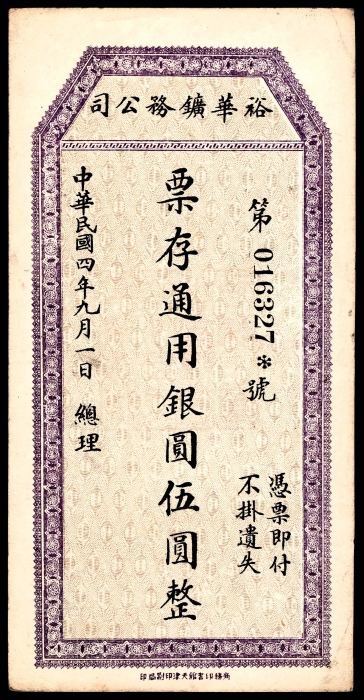 裕華鑛務公司
第 016327 * 號
憑票即付
不掛遺失
票存通用銀圓伍圓整
中華民國四年九月一日 總理
商務印書館天津印刷局印